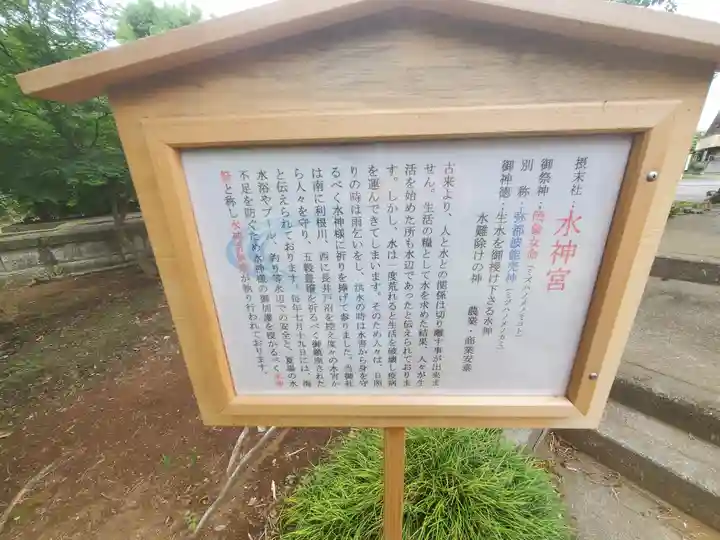 摂末社:水神宮
御祭神:罔象女命(ミズハノメノミコト)
別 称:弥都波能売神(ミヅハノメノカミ)
御神徳:生水を御授け下さる水神 農業・商業安泰
水難除けの神
古来より、人と水との関係は切り離す事が出来ま
せん。生活の糧として水を求めた結果、人々が生
活を始めた所も水辺であったと伝えられておりま
す。しかし、水は一度荒れると生活を破壊し疫病
を運んできてしまいます。そのため人々は、日照
りの時は雨乞いをし、洪水の時は水害から身を守
るべく水神様に祈りを捧げて参りました。当御社
は南に利根川、西に長井戸沼を控え度々の水害か
ら人々を守り、五穀豊穣を祈るべく御鎮座された
と伝えられております。毎年七月十九日には、海
水浴やプール、釣り等水辺での安全と、夏場の水
不足を防ぐため水神様の御加護を授かるべく
祭と称し が執り行われております。